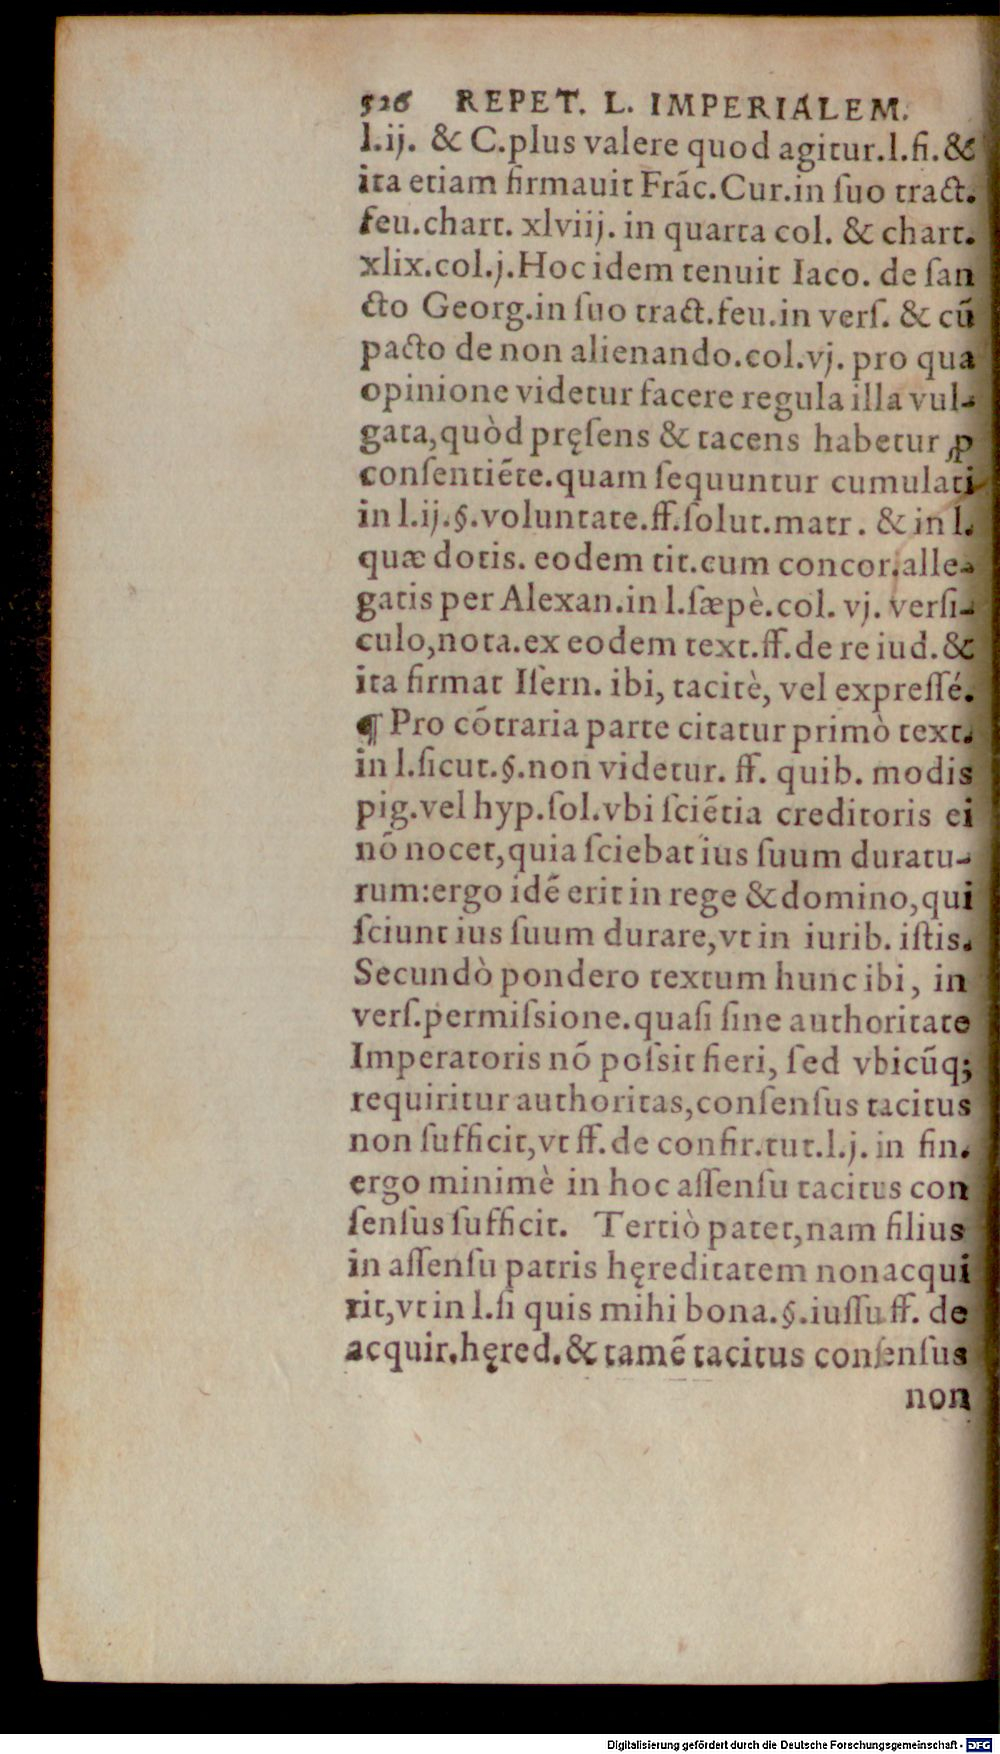 526 REPET. L. IMPERIALEM.
l.ij. & C.plus valere quod agitur.l.fi.&
ita etiam firmauit Frãc.Cur.in ſuo tract.
feu.chart. xlviij. in quarta col. & chart.
xlix.col.j.Hoc idem tenuit Iaco. de ſan
cto Georg.in ſuo tract.feu.in verſ. & cũ
pacto de non alienando.col.vj. pro qua
opinione videtur facere regula illa vul-
gata,quòd pręſens & tacens habetur ꝓ
conſentiẽte.quam ſequuntur cumulati
in l.ij.§.voluntate.ff.ſolut.matr. & in l.
quæ dotis. eodem tit.cum concor.alle-
gatis per Alexan.in l.ſæpè.col. vj. verſi-
culo,nota.ex eodem text.ff.de re iud.&
ita firmat Iſern. ibi, tacitè, vel expreſſé.
¶ Pro cõtraria parte citatur primò text.
in l.ſicut.§.non videtur. ff. quib. modis
pig.vel hyp.ſol.vbi ſciẽtia creditoris ei
nõ nocet,quia ſciebat ius ſuum duratu-
rum:ergo idẽ erit in rege & domino,qui
ſciunt ius ſuum durare,vt in iurib. iſtis.
Secundò pondero textum hunc ibi, in
verſ.permiſsione.quaſi ſine authoritate
Imperatoris nõ poſsit fieri, ſed vbicũq;
requiritur authoritas,conſenſus tacitus
non ſufficit,vt ff.de confir.tut.l.j. in fin.
ergo minimè in hoc aſſenſu tacitus con
ſenſus ſufficit. Tertiò patet,nam filius
in aſſenſu patris hęreditatem non acqui
rit,vt in l.ſi quis mihi bona.§.iuſſu ff. de
acquir.hęred.& tamẽ tacitus conſenſus
non
Digitalisierung gefördert durch die Deutsche Forschungsgemeinschaft - DFG